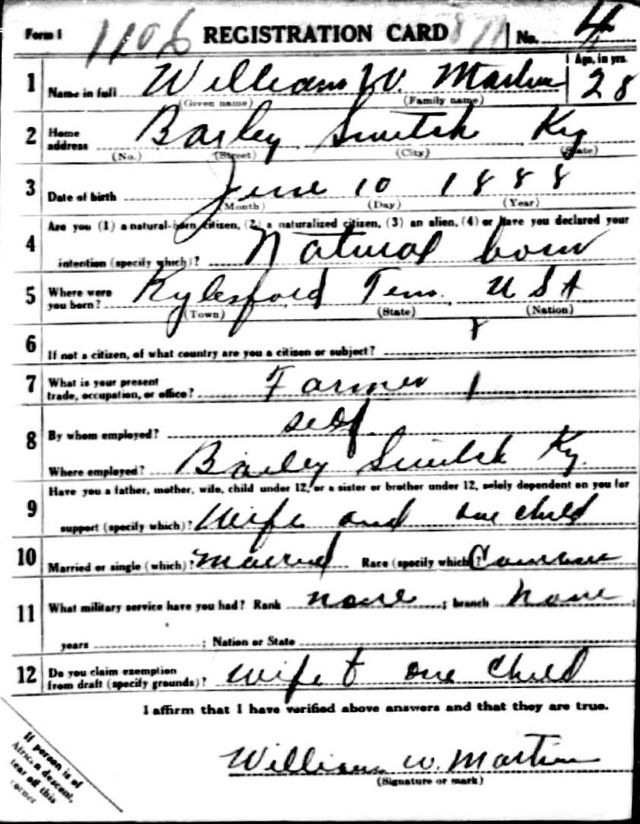 Form 1 1106 REGISTRATION CARD 871 No. 4
1 Name in full William W. Martin Age, in yrs. 28
(Given name) (Family name)
2 Home address Barley Switch Ky
(No.) (Street) (City) (State)
3 Date of birth June 10 1888
(Month) (Day) (Year)
Are you (1) a natural-born citizen, (2) a naturalized citizen, (3) an alien, (4) or have you declared your
4 intention (specify which)? Natural born
5 Where were you born? Kylesford Tenn. USA
(Town) (State) (Nation)
6 If not a citizen, of what country are you a citizen or subject?
7 What is your present trade, occupation, or office? Farmer 1
8 By whom employed? self
Where employed? Barley Switch Ky.
Have you a father, mother, wife, child under 12, or a sister or brother under 12, solely dependent on you for
9 support (specify which)? Wife and one child
10 Married or single (which)? Married Race (specify which)? Caucasian
11 What military service have you had? Rank none ; branch none
years ; Nation or State
12 Do you claim exemption from draft (specify grounds)? wife & one child
I affirm that I have verified above answers and that they are true.
William W. Martin
(Signature or mark)
If person is of
African descent,
tear off this
corner